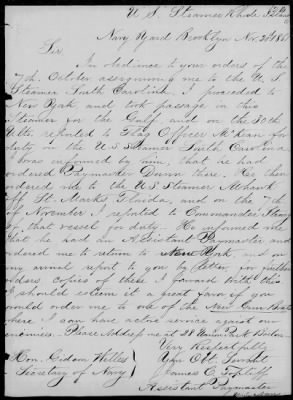 U. S. Steamer Rhode Island
Navy Yard Brooklyn Nov. 20th 1861
Sir,
In obedience to your orders of the
7th October assigning me to the U S
Steamer South Carolina. I proceeded
to New York and took passage in this
Steamer for the Gulf, and on the 30th
Ulto. reported to Flag Officer McKean for
duty in the U S Steamer South Carolina
I was informed by him, that he had
ordered Paymaster Dunn there. He then
ordered me to the US Steamer Mohawk
off St. Marks, Florida, and on the 7th
of November I reported to Commander Strong
of that vessel for duty. He informed me
that he had an Assistant Paymaster and
ordered me to return to New York and on
my arrival report to you by letter, for further
orders copies of these I forward with this
I should esteem it a great favor if you
would order me to one of the New Gun Boats
where I can have active service against our
enemies. Please Address me at 28 Union Park Boston
Very Respectfully
Your Obt. Servant
James C. Topliff
Assistant Paymaster
Hon. Gideon Welles
Secretary of Navy